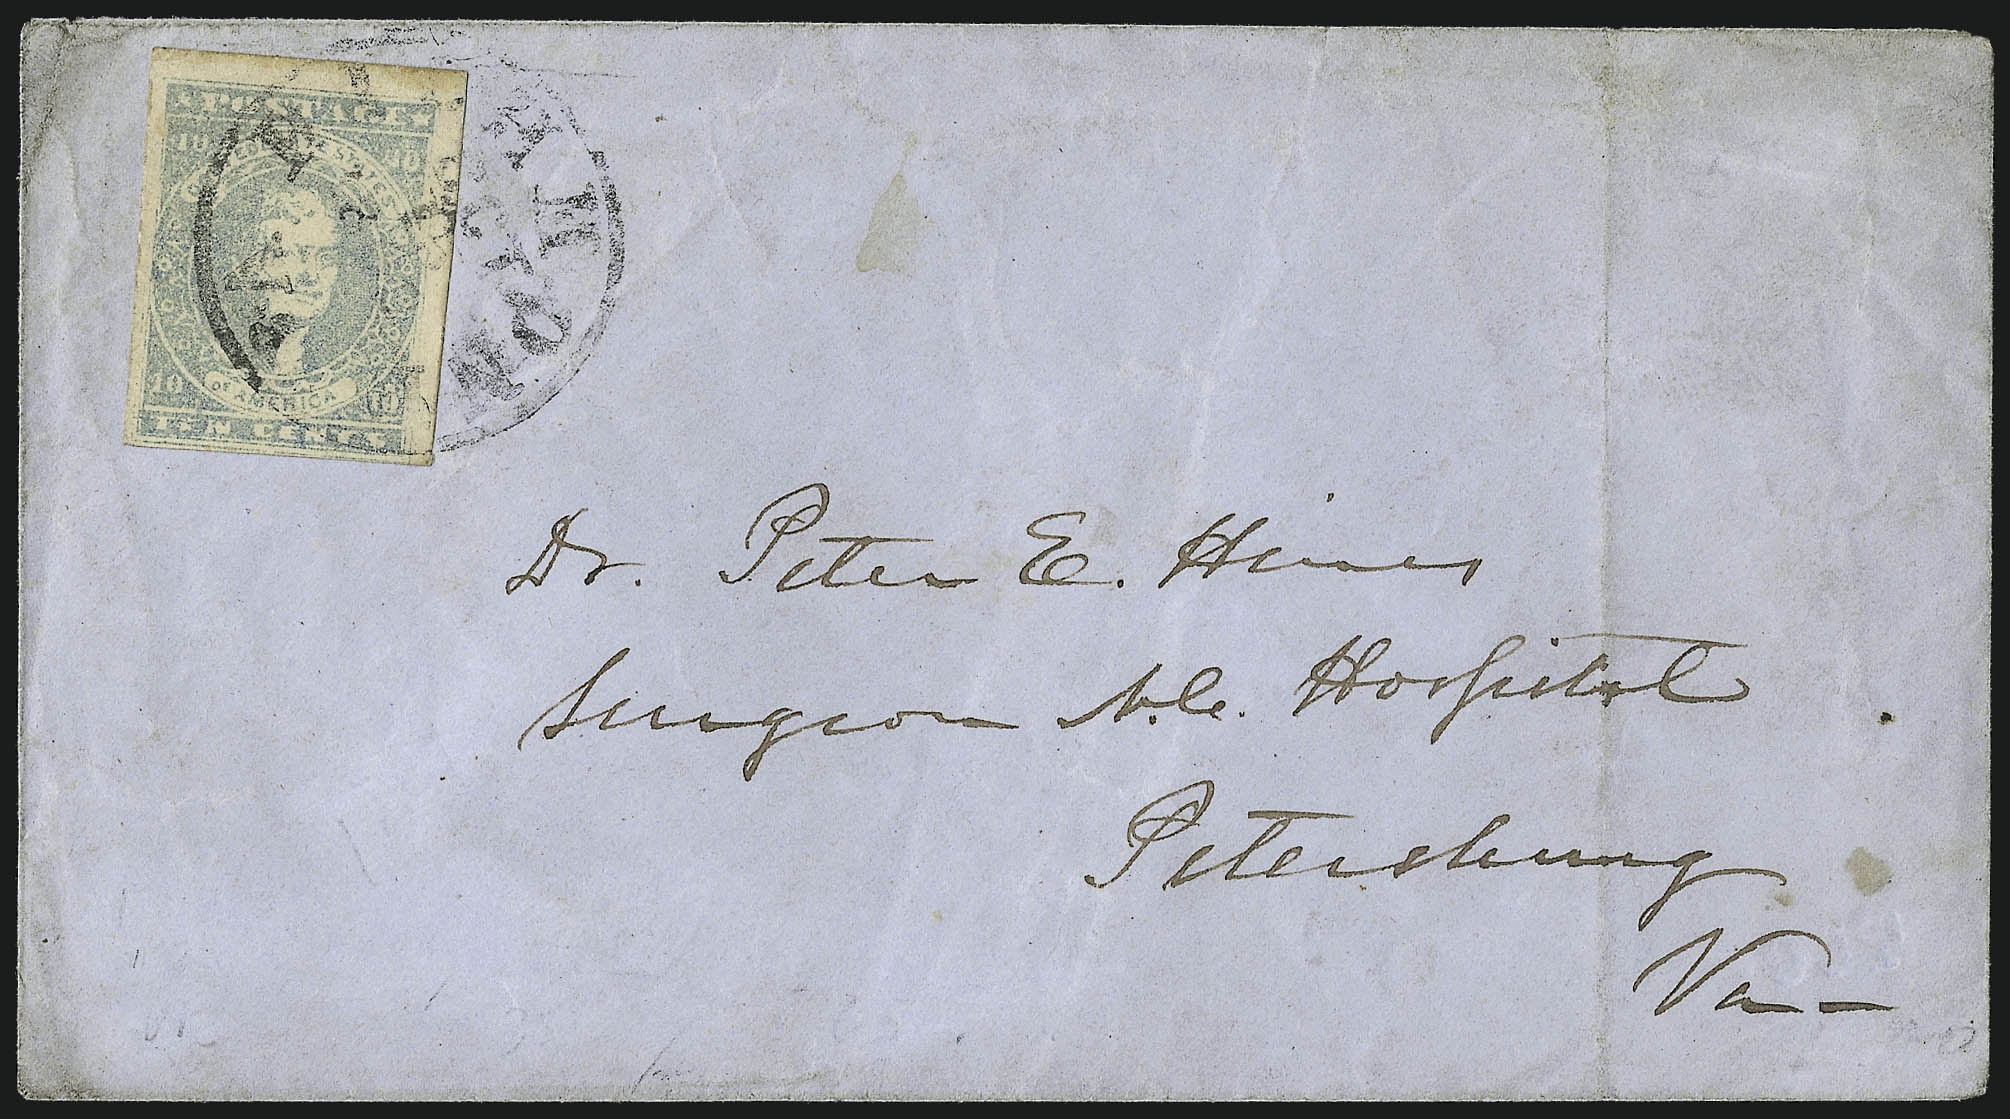 POSTAGE
10 10
CONFEDERATE STATES
OF AMERICA
10 10
TEN CENTS
Dr. Peter E. Hines
Surgeon N.C. Hospital
Petersburg
Va-